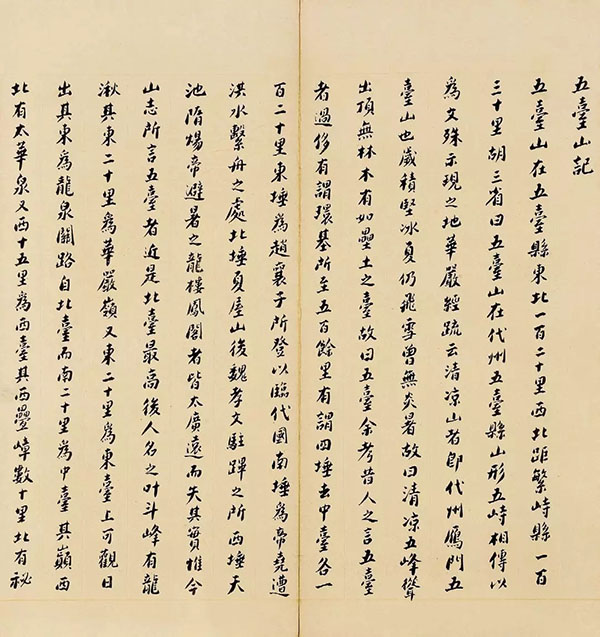 五臺山記
五臺山在五臺縣東北一百二十里西北距繁峙縣一百
三十里胡三省曰五臺山在代州五臺縣山形五峙相傳以
爲文殊示現之地華嚴經疏云清涼山者即代州鴈門五
臺山也歲積堅冰夏仍飛雪曾無炎暑故曰清涼五峰聳
出頂無林木有如壘土之臺故曰五臺余考昔人之言五臺
者過侈有謂環基所至五百餘里有謂四埵去中臺各一
百二十里東埵爲趙襄子所登以臨代國南埵爲帝堯遭
洪水繫舟之處北埵夏屋山後魏孝文駐蹕之所西埵天
池隋煬帝避暑之龍樓鳳閣者皆太廣遠而失其實惟今
山志所言五臺者近是北臺最高後人名之叶斗峰有龍
湫其東二十里爲華嚴嶺又東二十里爲東臺上可觀日
出其東爲龍泉關路自北臺而南二十里爲中臺其巔西
北有太華泉又西十五里爲西臺其西疊嶂數十里北有秘